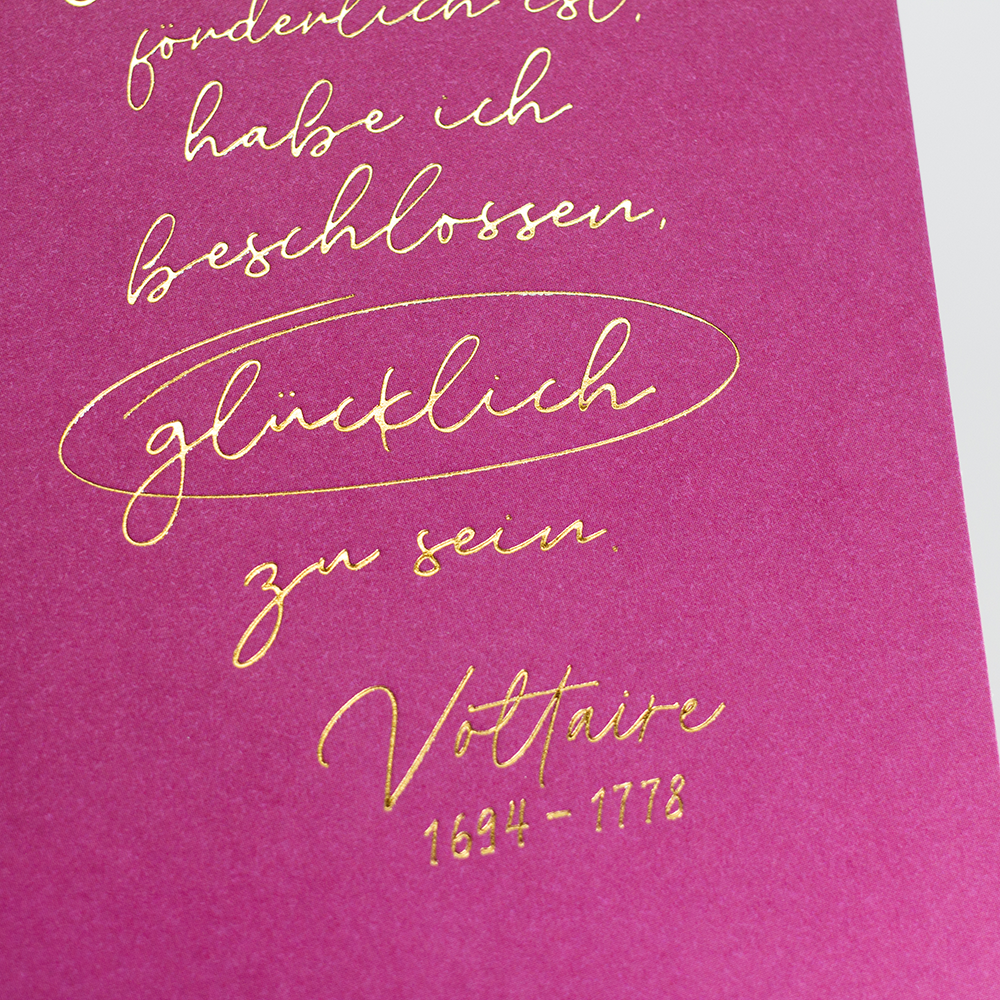 förderlich ist,
habe ich
beschlossen,
glücklich
zu sein.
Voltaire
1694 – 1778